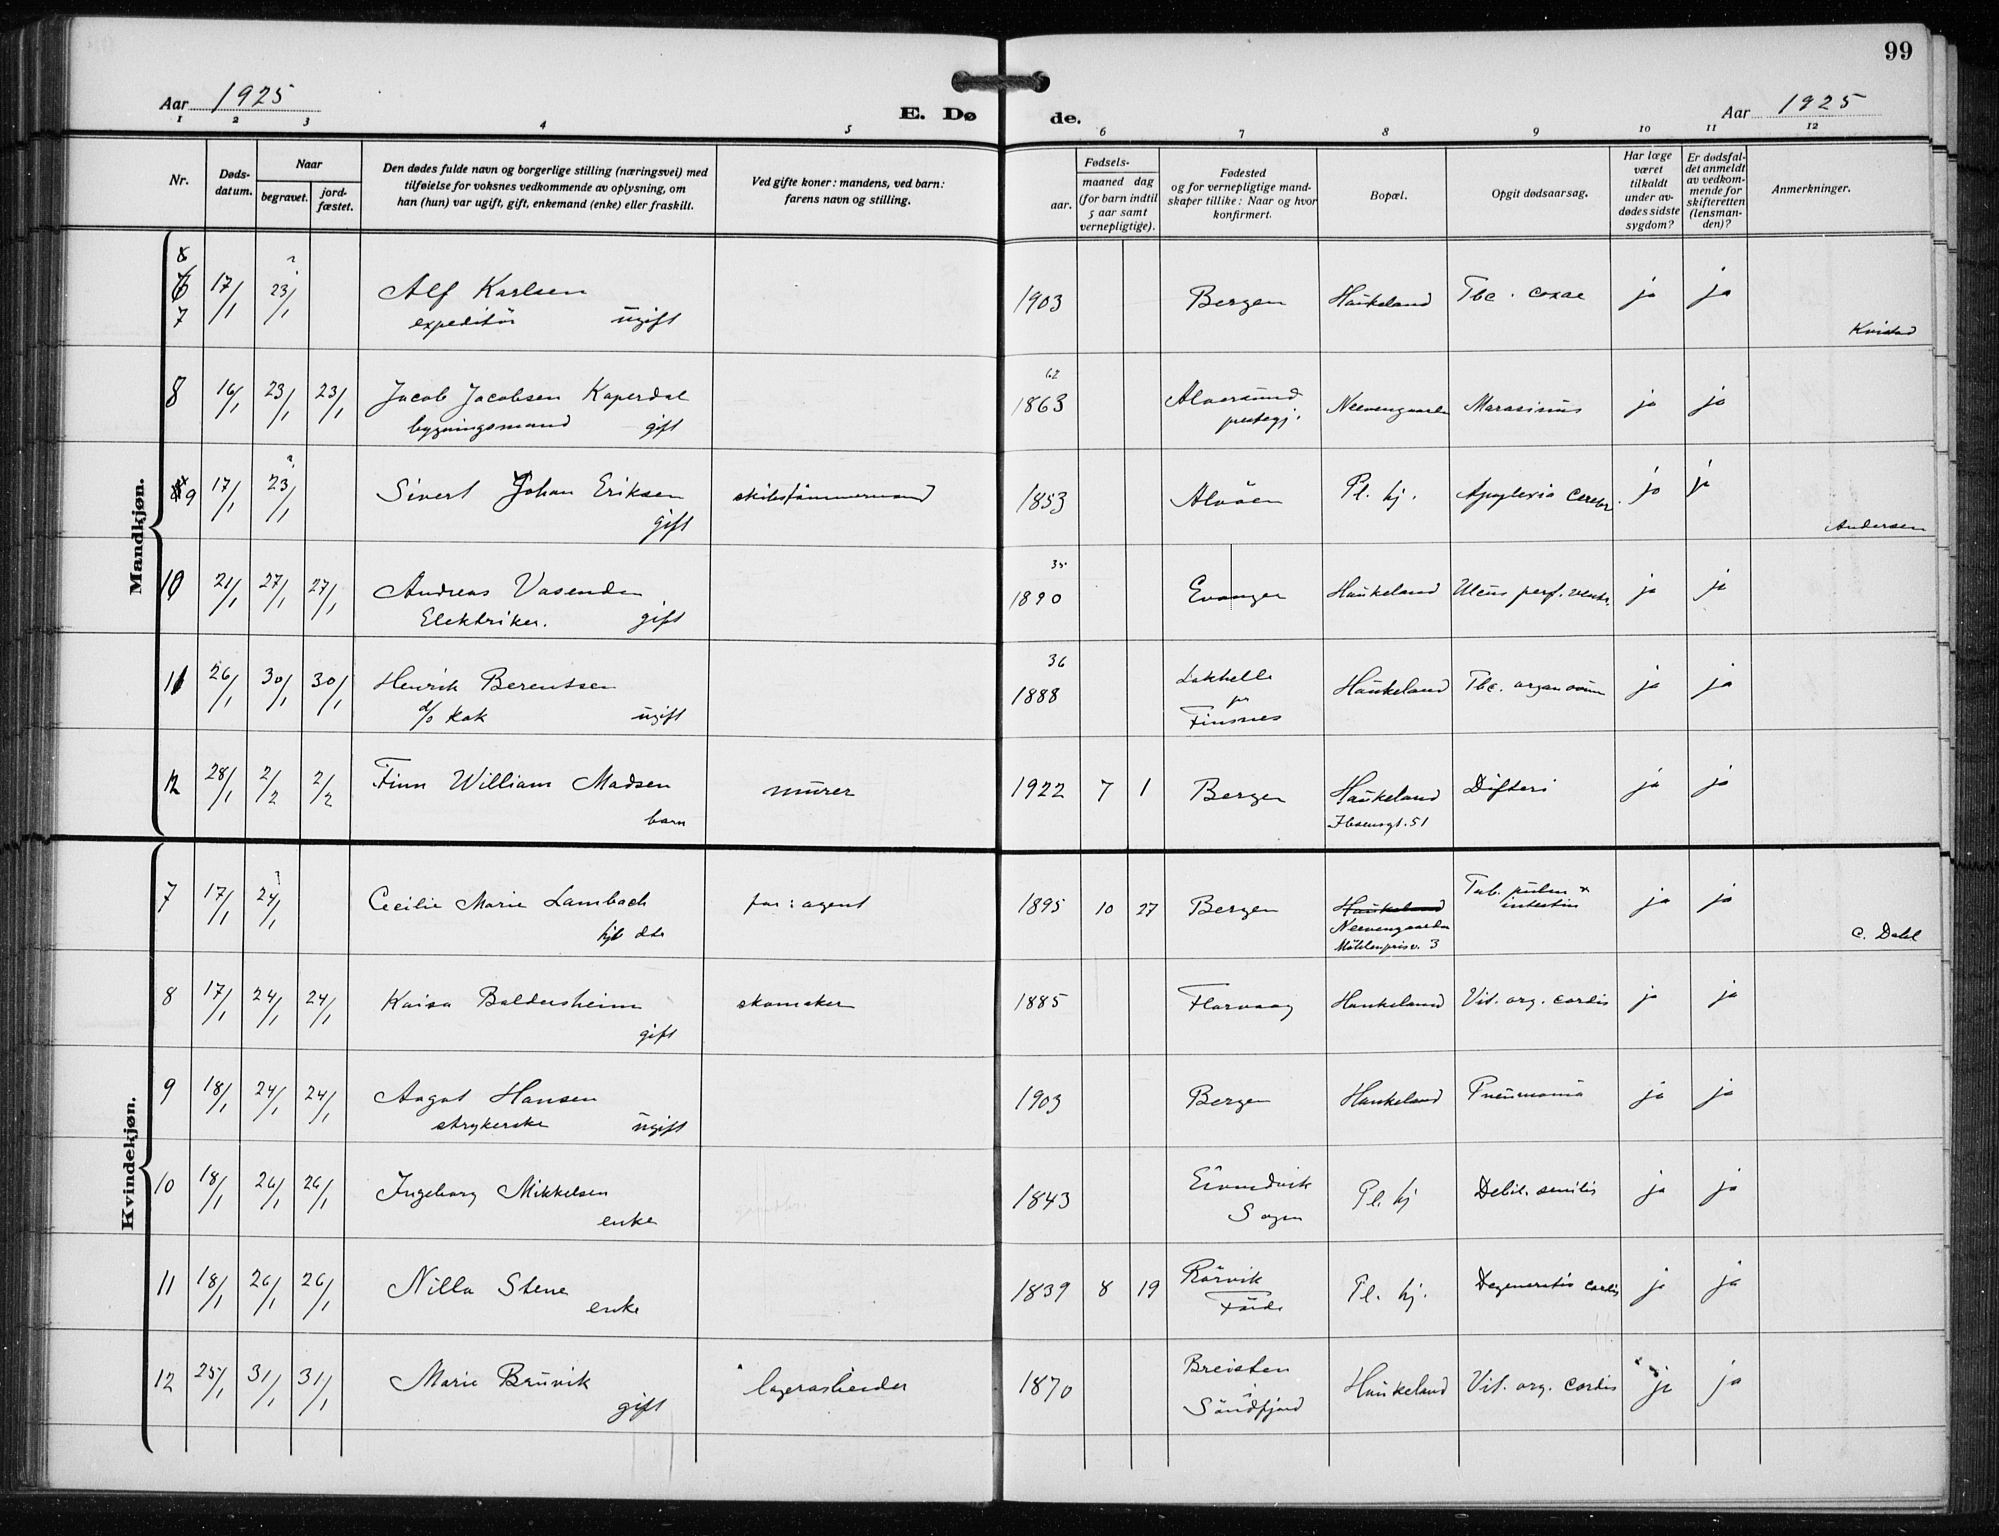 99
Aar 1925
E. Dø de.
Aar 1925
1 2 3 4 5 6 7 8 9 10 11 12
Nr.
Døds-
datum.
Naar
begravet.
jord-
fæstet.
Den dødes fulde navn og borgerlige stilling (næringsvei) med
tilføielse for voksnes vedkommende av oplysning, om
han (hun) var ugift, gift, enkemand (enke) eller fraskilt.
Ved gifte koner: mandens, ved barn:
farens navn og stilling.
Fødsels-
aar.
maaned dag
(for barn indtil
5 aar samt
vernepligtige).
Fødested
og for vernepligtige mand-
skaper tillike: Naar og hvor
konfirmert.
Bopæl.
Opgit dødsaarsag.
Har læge
været
tilkaldt
under av-
dødes sidste
sygdom?
Er dødsfal-
det anmeldt
av vedkom-
mende for
skifteretten
(lensman-
den)?
Anmerkninger.
Mandkjøn.
7 17/1 23/1 Alf Karlsen 1903 Bergen Haukeland Tbc. coxae ja ja
expeditör ugift
Kvistad
62
8 16/1 23/1 23/1 Jacob Jacobsen Kaperdal 1863 Alversund Neevengaarden Marasimus ja ja
bygningsmand gift prestegj.
9 17/1 23/1 Sivert Johan Eriksen skibstömmermand 1853 Alvöen Pl. hj. Apoplexia cerebr. ja ja
gift
Andersen
35
10 21/1 27/1 27/1 Andreas Vasenden 1890 Evanger Haukeland Ulcus perf. ventr. ja ja
Elektriker. gift
36
11 26/1 30/1 30/1 Henrik Berentsen 1888 Lakhella Haukeland Tbc. organorum ja ja
d/s kok ugift pr
Finsnes
12 28/1 2/2 2/2 Finn William Madsen murer 1922 7 1 Bergen Haukeland Difteri ja ja
barn Ibsensgt. 51
Kvindekjøn.
7 17/1 24/1 Cecilie Marie Lambach far: agent 1895 10 27 Bergen Haukeland Tub. pulm +
intestin ja ja
hjv dtr Neevengaarden
Möhlenprisv. 3
C. Dahl
8 17/1 24/1 24/1 Kaisa Baldersheim skomaker 1885 Florvaag Haukeland Vit. org. cordis ja ja
gift
9 18/1 24/1 24/1 Aagot Hansen 1903 Bergen Haukeland Pneumonia ja ja
strykerske ugift
10 18/1 26/1 26/1 Ingeborg Mikkelsen 1843 Eivindvik Pl. hj Debil. senilis ja ja
enke Sogn
11 18/1 26/1 26/1 Nilla Stene 1839 8 19 Rörvik Pl. hj. Degeneratio cordis ja ja
enke Förde
12 25/1 31/1 31/1 Marie Bruvik lagerarbeider 1870 Breisten Haukeland Vit. org. cordis ja ja
gift i
Söndfjord